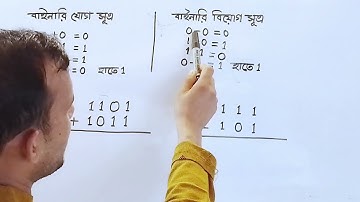 বাইনারি যোগ সূত্র
+0 = 0
= 1
= 1
= 0 হাতে 1
1101
+ 1011
বাইনারি বিয়োগ সূত্র
0 0 = 0
1 0 = 1
1 1 = 0
0 - = 1 হাতে 1
1 1 1
- 101